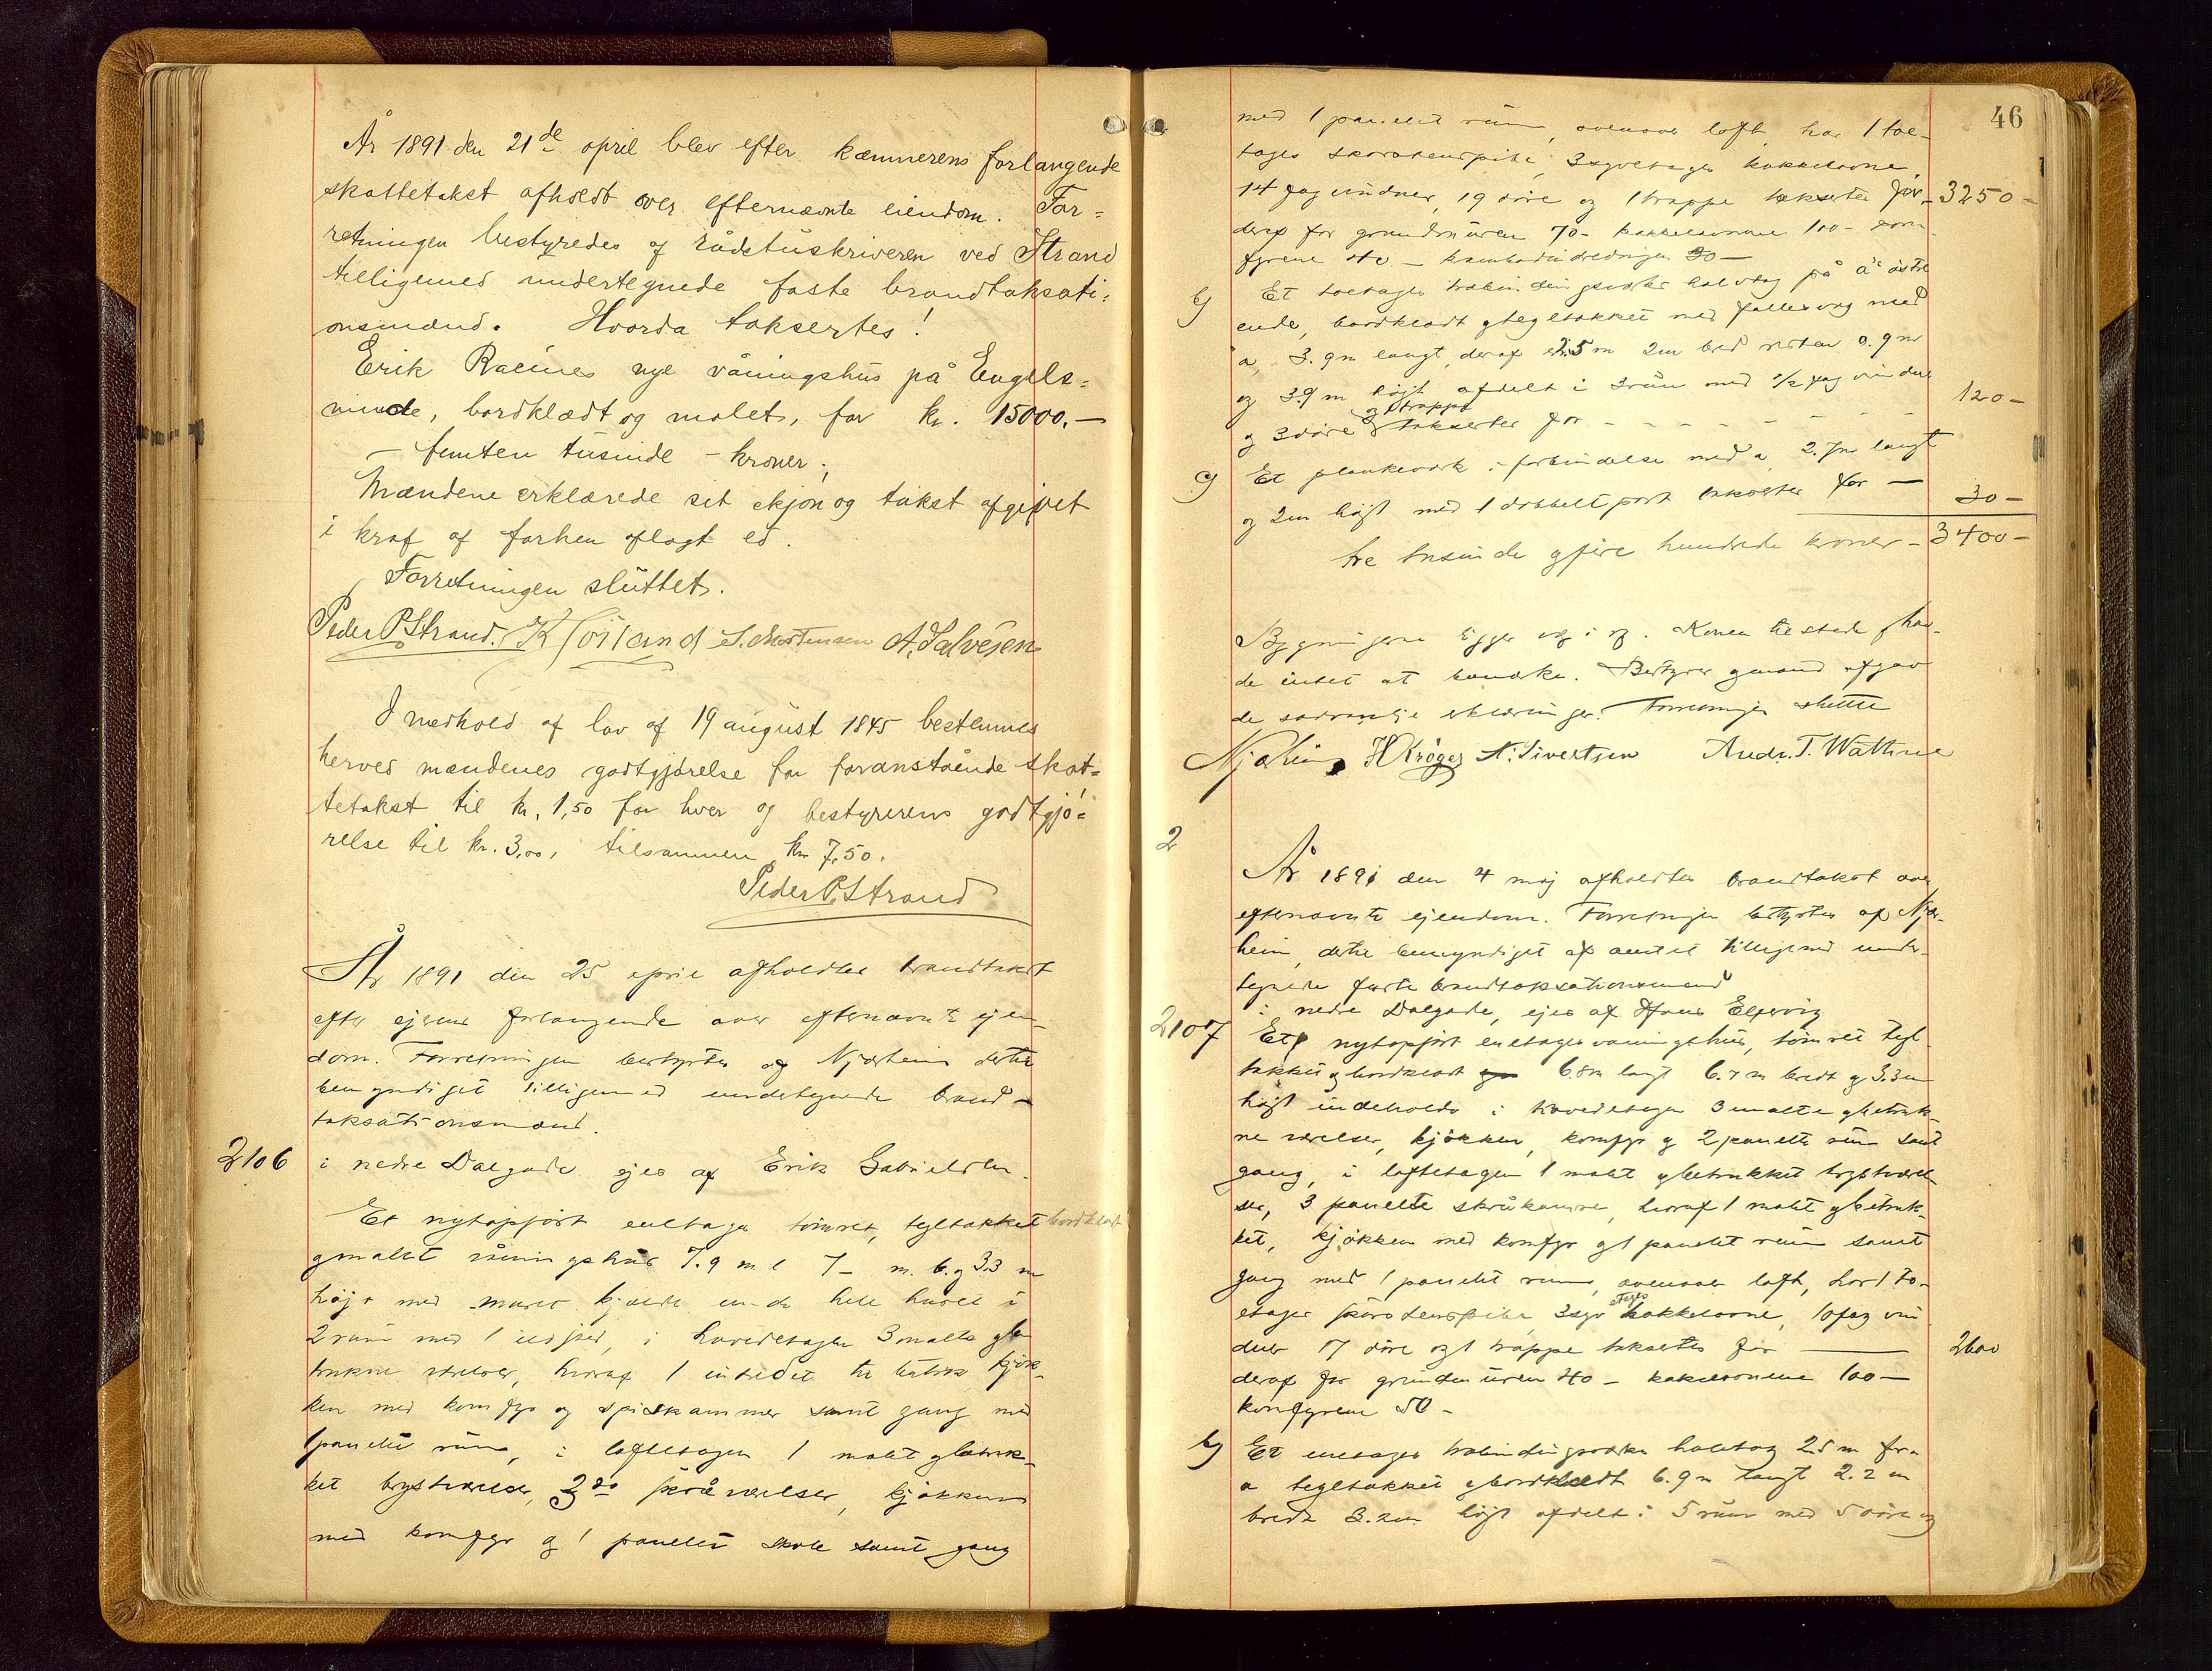 År 1891 den 21de april blev efter kæmnerens forlangende
skattetakst afholdt over efternævnte eiendom. For=
retningen bestyredes af rådstuskriveren ved Strand
tilligemed undertegnede faste brandtaksati=
onsmænd. Hvorda taksertes!
Erik Raeines nye våningshus på Engels=
minde, bordklædt og malet, for kr. 15000.—
— femten tusinde – kroner.
Mændene erklærede sit skjøn og takst afgivet
i kraf af forhen aflagt ed.
Forretningen sluttet.
Peder P Strand. S. Mortensen A. Salvesen
I medhold af lov af 19 august 1845 bestemmes
herved mændenes godtgjørelse for foranstående skat=
tetakst til kr. 1,50 for hver og bestyrerens godtgjø=
relse til kr. 3,00, tilsammen kr 7,50.
Peder P. Strand
År 1891 den 25 april afholdtes brandtakst
efter ejerens forlangende over efternævnte ejen-
dom. Forretningen bestyrtes af Njærheim dertil
bemyndiget tilligemed undertegnede brand-
taksationsmænd.
2106 i nedre Dalgade ejes af Erik Gabrielsen.
Et nytopført enetages tømret, tegltakket bordklædt
og malet våningshus 7.9 m l 7 – m. b. og 3.3 m
højt med muret kjælder under hele huset i
2 rum med 1 ildsted, i hovedetagen 3 malte og be
trukne værelser, hvoraf 1 til kjøk-
ken med komfyr og spiskammer samt gang med
1 panelet rum, i loftetagen 1 malet og betruk-
ket brystværelse, 3 do skråværelser, kjøkken
med komfyr og 1 panelet samt gang
46
med 1 panelet rum, ovenover loft, har 1 toe-
tages skorstenspibe, 3 kakkelovne,
14 fag vinduer, 19 døre og 1 trappe takseres for – 3250 –
deraf for grundmuren 70 – kakkelovnene 100 – kom-
fyrene
b) Et toetages halvtag på a's østre
ende, bordklædt og tegltakket med fællesvæg med
a, 3.9 m langt, deraf 2.5 m 2 m bred resten 0.9 m
og 3.9 m højt afdelt i 3 rum med ½ fag vinduer
og 3 døre og 1 trappe taksertes for – – – – – 120 –
c) Et plankeværk i forbindelse med a, 2.7 m langt
og 2 m højt med 1 dobbelt port taksertes for — 30 –
tre tusinde og fire hundrede kroner – 3400 –
Bygningerne ligger Konen tilstede hav-
de intet at bemærke. Bestyrer og mænd afgav
de sædvanlige erklæringer. Forretningen sluttet
Njærheim H Krøger N. Sivertsen Andr. T. Wathne
2
År 1891 den 4 maj afholdtes brandtakst over
efternævnte ejendom. Forretningen bestyrtes af Njær-
heim, dertil bemyndiget af amtet tilligemed under-
tegnede faste brandtaksationsmænd
i nedre Dalgade, ejes af Hans Elservig
2107 Et nytopført enetages våningshus, tømret tegl
takket og bordklædt 6.8 m langt 6.7 m bredt og 3.3 m
højt indeholder i hovedetagen 3 malte og betruk-
ne værelser, kjøkken, komfyr og 2 panelte rum samt
gang, i loftetagen 1 malet og betrukket brystværel-
se, 3 panelte skråkamre, hvoraf 1 malet og betruk-
ket, kjøkken med komfyr og 1 panelet rum samt
gang med 1 panelet rum, ovenover loft, har 1 to-
etages skorstenspibe, 3 etages kakkelovne, 10 fag vin
duer 17 døre og 1 trappe taksertes for — 2600
deraf for grundmuren 40 – kakkelovnene 100 —
komfyrene 50 –
b) Et enetages halvtag 2.5 m fra
a tegltakket og bordklædt 6.9 m langt 2.2 m
bredt 3.2 m højt afdelt i 5 rum med 5 døre og